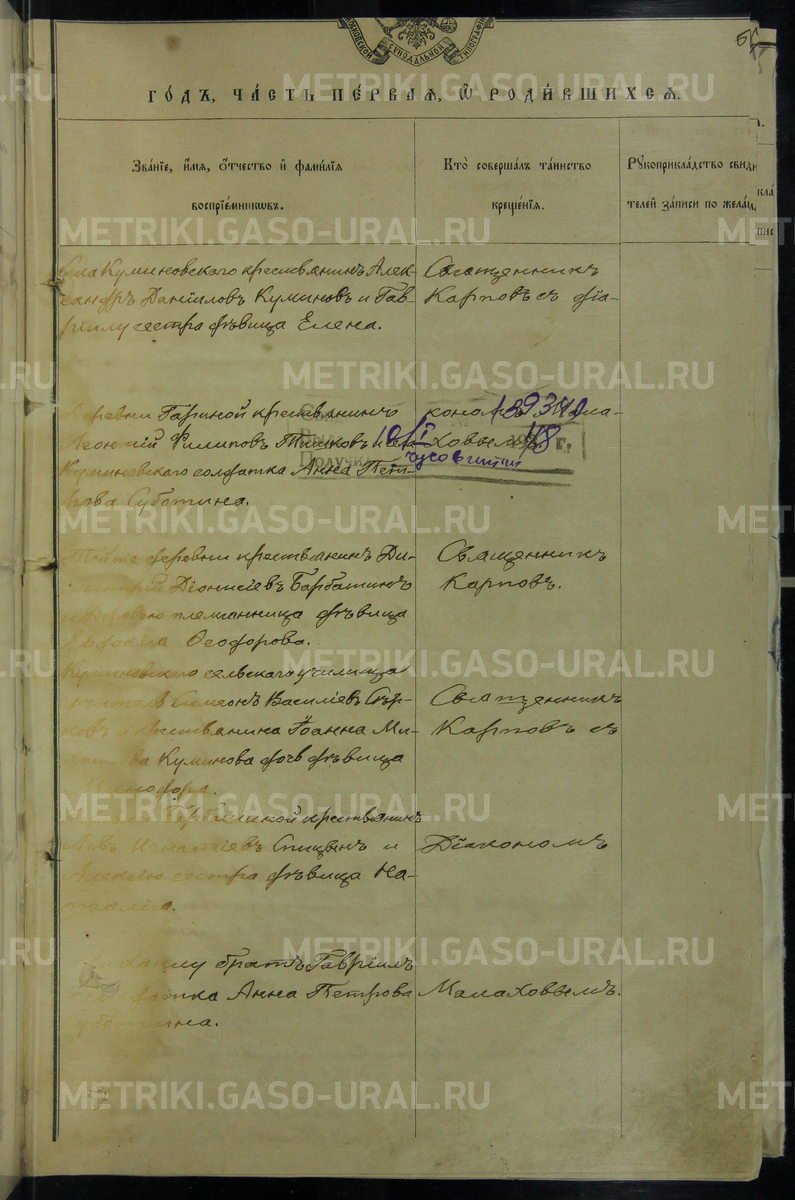 МОСКОВСКОЙ СУНОДАЛЬНОЙ ТИПОГРАФІИ
ГО́ДЪ, ЧА́СТЬ ПЕ́РВАѦ, Ѿ РОДИ́ВШИХСѦ.
Зва́нїе, и҆́мѧ, ѻ҆́тчество и҆ фами́лїѧ
воспрїе́мникѡвъ.
Кто̀ соверша́лъ та́инство
креще́нїѧ.
Рꙋкоприкла́дство свиди
телей за́писи по жела́н.
Села Куминовскаго крестьянинъ Алек-
сандръ Даніиловъ Куминовъ и Гав-
ріилу сестра дѣвица Елена.
Священникъ
Карповъ съ діа-
Деревни Гариной крестьянинъ
Леонтій Филиповъ Тишковъ и села
Куминовскаго солдатка Анна Пет-
рова Суботина.
кономъ Мала-
ховымъ.
10/I 48 г.
Получ
Тойже деревни крестьянинъ Ди-
митрій Діонисіевъ Барбашинъ
племянница дѣвица
Евдокія Ѳеодорова.
Священникъ
Карповъ.
Куминовскаго сельскаго училища
Симеонъ Василіевъ
и крестьянина Іоанна Ми-
хаилова Куминова дочь дѣвица
Священникъ
Карповъ съ
крестьянинъ
Левъ Игнатіевъ Спицынъ и
Алексію сестра дѣвица На-
талія.
Діакономъ
братъ Гавріилъ
солдатка Анна Петрова
Суботина.
Малаховымъ.
METRIKI.GASO-URAL.RU